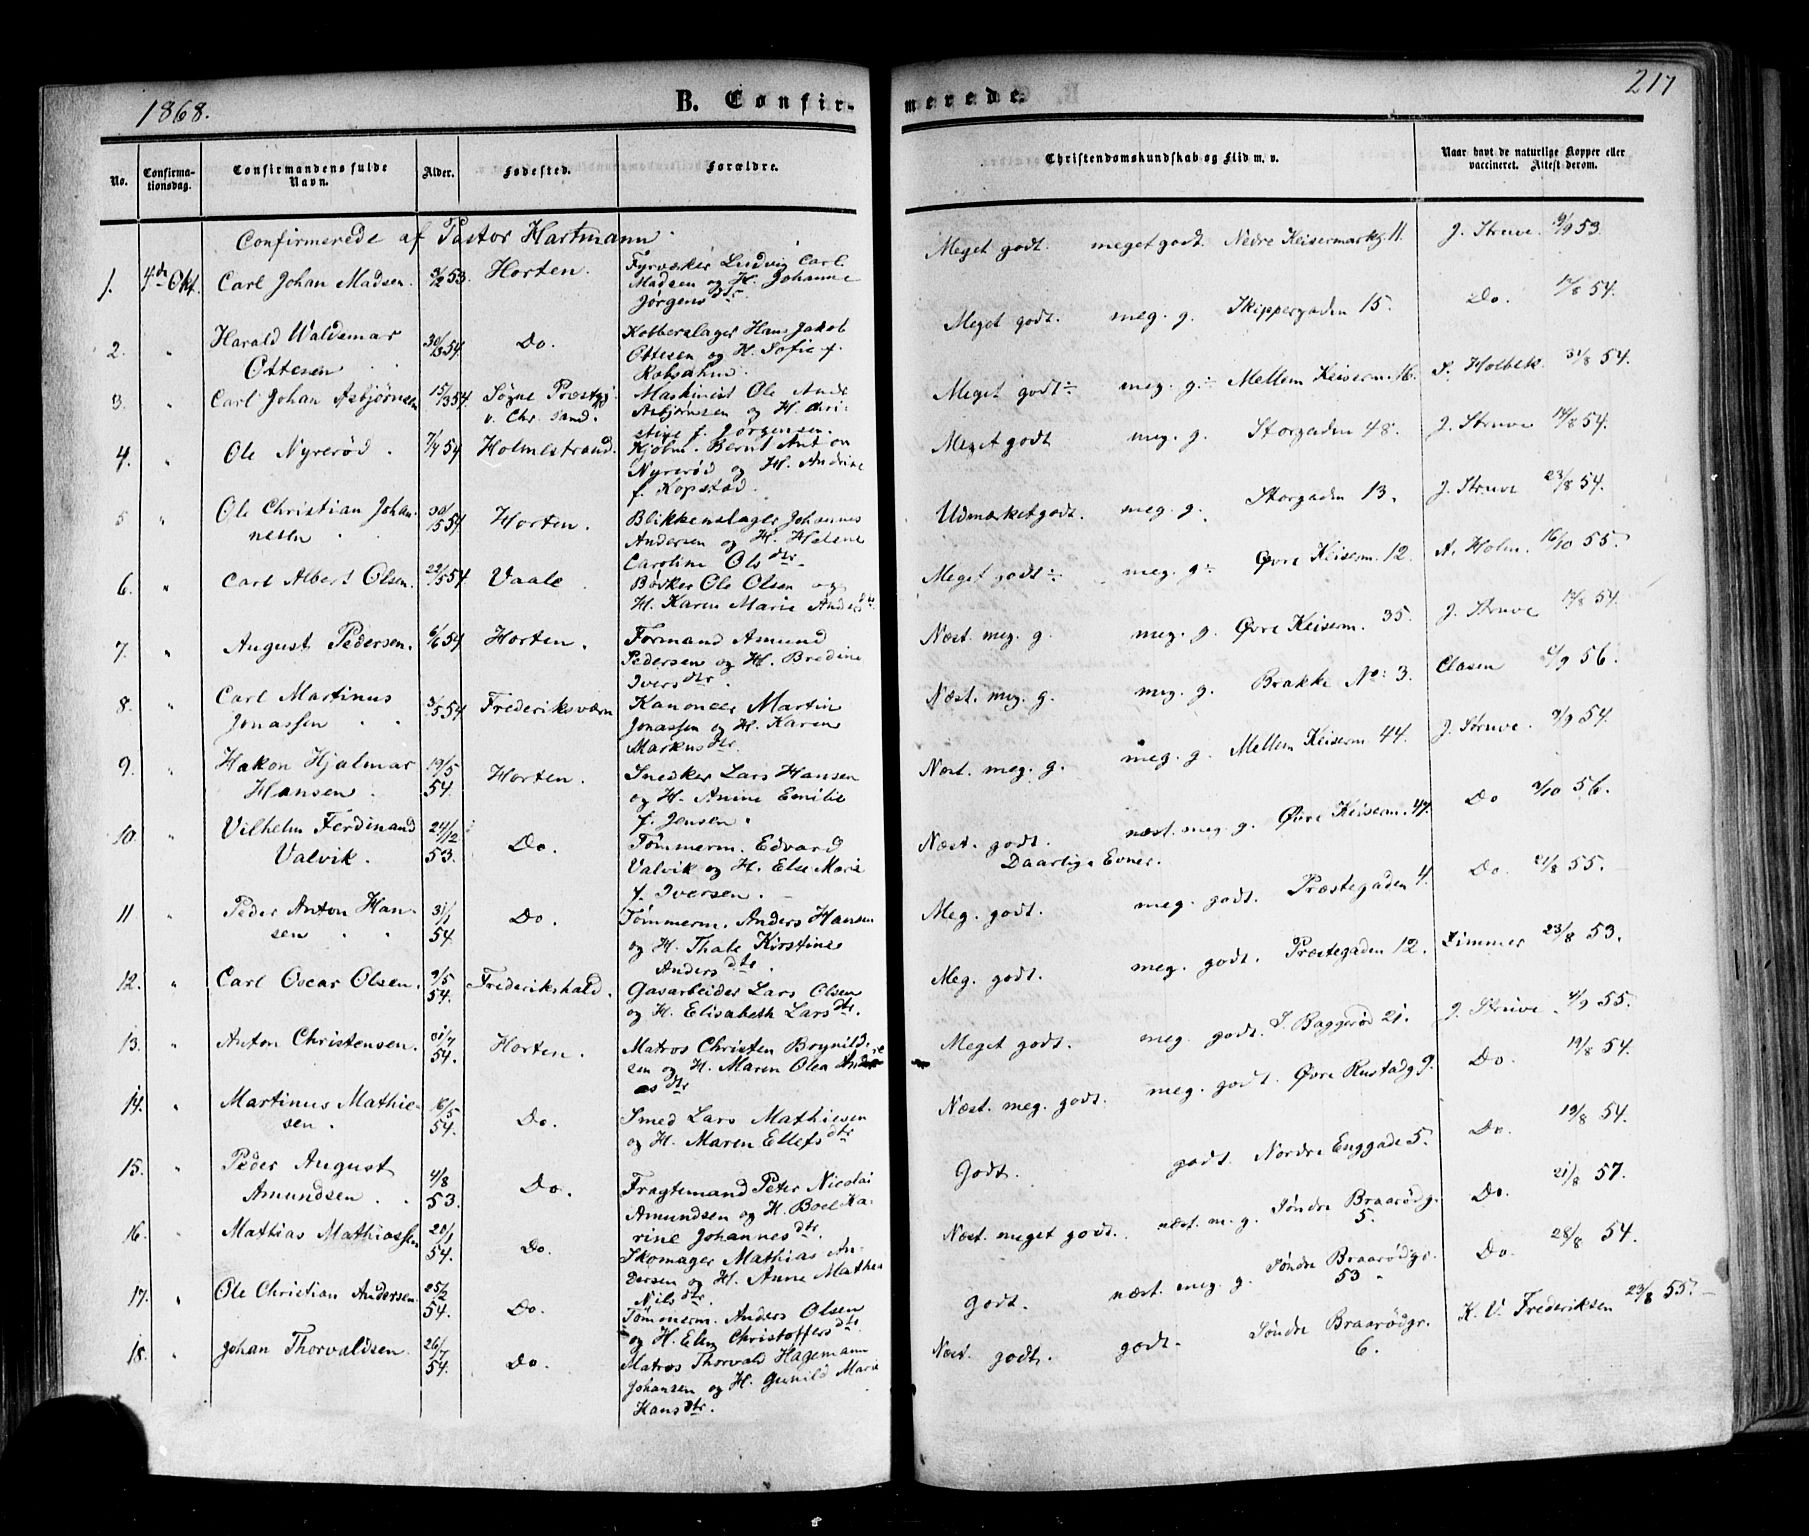 1868.
B. Confirmerede.
217
No.
Confirmationsdag.
Confirmandens fulde Navn.
Alder.
Fødested.
Forældre.
Christendomskundskab og Flid m. v.
Naar havt de naturlige Kopper eller vaccineret. Attest derom.
Confirmerede af Pastor Hartmann.
1. 4de Okt. Carl Johan Madsen. 53. Horten. Fyrvæker Ludvig Carl
Madsen og H. Johanne
Jørgensdtr
Meget godt. meget godt. Nedre Keisermarkg. 11. J. Struve 9/9 53.
2. " Harald Waldemar
Ottesen 54 Do. Kobberslager Hans Jakob
Ottesen og H. Sofie f.
Meget godt. meg. g. Skippergaden 15. Do. 54.
3. " Carl Johan Asbjørnsen 15/3 54. Søgne Præstgj.
v. Chr. sand. Maskinist Ole
Asbjørnsen og H. Chri-
stine f. Jørgensen.
Meget godt ÷ meg. g ÷ Mellem Keiserm. 16. Holbek 31/8 54.
4. " Ole Nyrerød. 54 Holmestrand. Kjølm. Bernt Anton
Nyrerød og H. Andrine
f. Kopstad.
Meget godt meg. g. Storgaden 48. J. Struve 54.
5 " Ole Christian Johan-
nesen 54 Horten. Blikkenslager Johannes
Andersen og H. Helene
Caroline Olsdtr
Udmærket godt. meg. g. Storgaden 13. J. Struve 23/8 54.
6. " Carl Albert Olsen. 22/5 54 Vaale Bødker Ole Olsen og
H. Karen Marie
Meget godt ÷ meg. g ÷ Øvre Keiserm. 12. A. Holm. 16/10 55.
7. " August Pedersen. 54 Horten. Formand Amund
Pedersen og H. Bredine
Iversdtr.
Næst. meg. g. meg. g. Øvre Keiserm. 35. J. Struve 54.
8. " Carl Martinus
Jonassen 3/5 54 Frederiksværn Kanoneer Martin
Jonassen og H. Karen
Markusdtr.
Næst. meg. g. meg. g. Brakke No: 3. Clasen 56.
9. " Hakon Hjalmar
Hansen 19/5 54. Horten. Snedker Lars Hansen
og H. Anine Emilie
f. Jensen.
Næst. meg. g. meg. g. Mellem Keiserm. 44. J. Struve 9/9 54.
10. " Vilhelm Ferdinand
Valvik. 24/12 53. Do. Tømmerm. Edvard
Valvik og H. Else Marie
f. Iversen.
Næst. godt. næst. meg. g. Øvre Keiserm. 47. Do 56.
Daarlige Evner.
11 " Peder Anton Han-
sen 31/1 54. Do. Tømmerm. Anders Hansen
og H. Thale Kirstine
Andersdtr.
Meg. godt. meg. godt. Præstegaden 4. Do. 21/8 55.
12. " Carl Oscar Olsen. 9/5 54. Frederikshald. Gasarbeider Lars Olsen
og H. Elisabeth Larsdtr
Meg. godt. meg. godt. Præstegaden 12. Zimmer 23/8 53.
13. " Anton Christensen. 31/7 54. Horten. Matros Christen Brynild-
sen og H. Maren Olea
Meget godt. meg. godt. Baggerød 21. J. Struve 4/9 55.
14. " Martinus Mathie-
sen. 16/5 54. Do. Smed Lars Mathiesen
og H. Maren Ellefsdtr
Næst. meg. godt. meg. godt. Øvre Rustadg 9. Do. 19/8 54.
15. " Peder August
Amundsen 4/8 53. Do. Fragtemand Peter Nicolai
Amundsen og H. Boel Ka-
rine Johannesdtr.
Godt. godt. Nordre Enggade 5. Do. 19/8 54.
16. " Mathias Mathiassen 54. Do. Skomager Mathias An-
dersen og H. Anne Mathea
Nilsdtr.
Næst. meget godt. næst. m. g. Søndre Braarødg.
5. Do. 21/8 57.
17. " Ole Christian Andersen. 25/2 54. Do. Tømmerm. Anders Olsen
og H. Elen Christoffersdtr
Godt. næst. meg. g. Søndre Braarødg.
53 Do. 28/8 54.
18. " Johan Thorvaldsen. 26/7 54. Do. Matros Thorvald Hagemann
Johansen og H. Gunild Marie
Hansdtr.
Næst. godt. godt. Søndre Braarødgr.
6. K. V. Frederiksen 23/8 55.